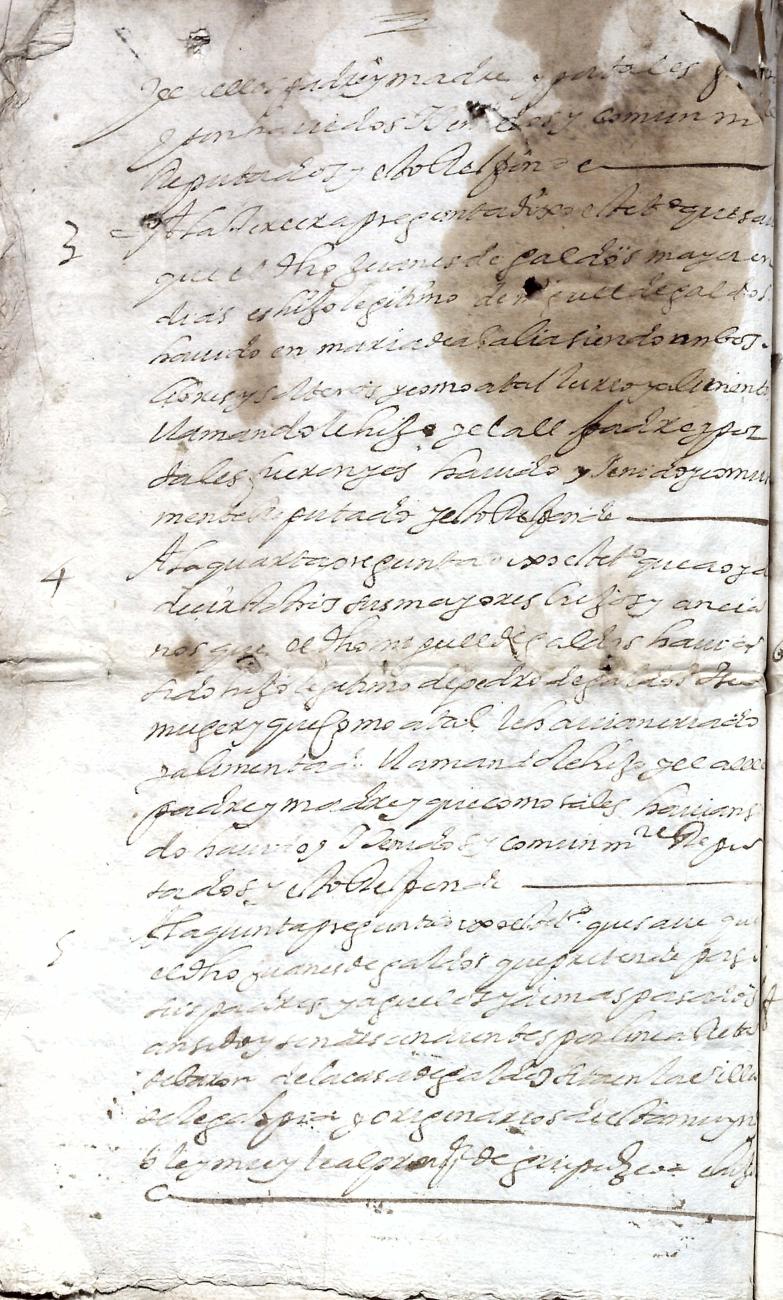 y el a ellos padre y madre y por tales
an sido havidos thenidos y comunm
Reputados y esto Responde
3 = A la tercera pregunta dixo el tto que save
que el dho Juanes de galdos mayor en
dias es hijo legitimo de miguel de galdos
havido en maria de siendo ambos
libres y solteros y como a tal le crio y alimento
llamandole hijo y el a el padre y por
tales fueron y es havido y tenido y comun
mente Reputado y esto Responde
4 A la quarta pregunta dixo el tto que a oydo
decir a otros sus mayores biejos y ancia
nos que el dho miguel de galdos havia
sido hijo legitimo de pedro de galdos
muger y que como a tal le havian criado
y alimentado llamandole hijo y el a ellos
padre y madre y que como tales havian si
do havidos thenidos y comunmte Repu
tados y esto Responde
5 A la quinta pregunta dixo el tto que save que
el dho Juanes de galdos que pretende por si
sus padres y aguelos y demas pasados
an sido y son descendientes por linea Reta
de baron de la casa de galdos sita en la villa
de legazpia y originarios de esta muy no
ble y muy leal provª de guipuzcoa